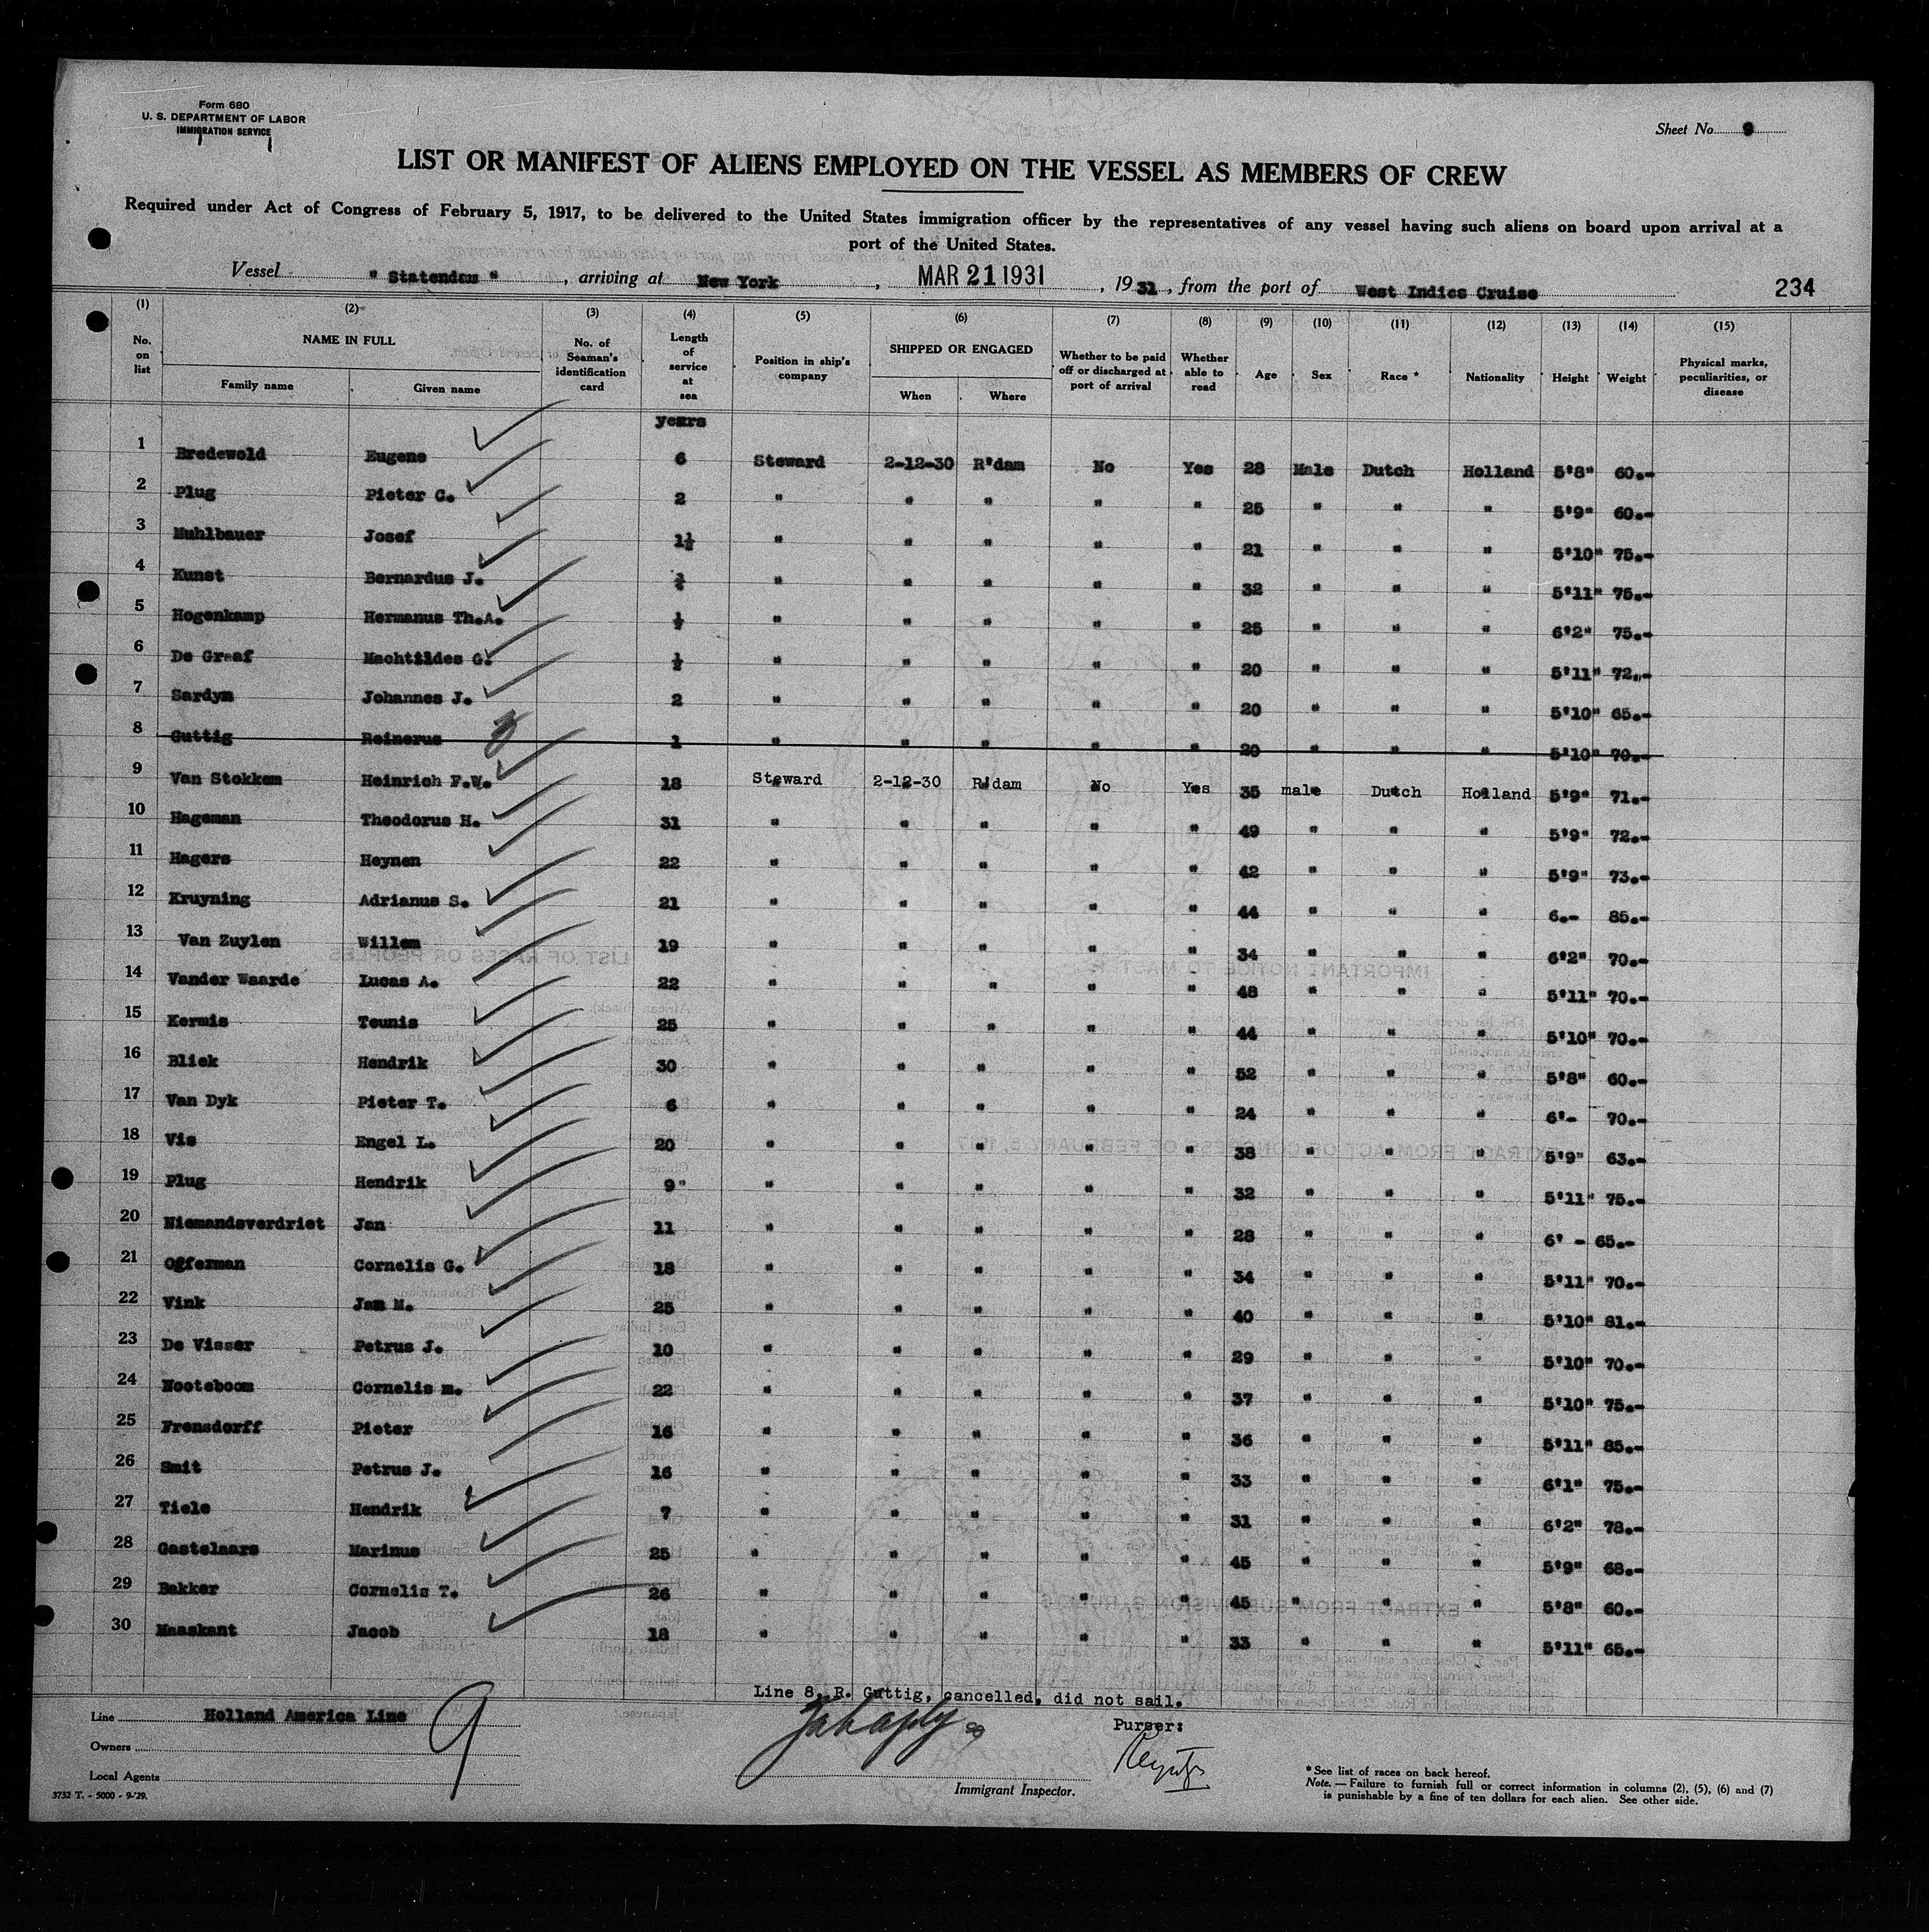 Form 680
U. S. DEPARTMENT OF LABOR
IMMIGRATION SERVICE
Sheet No. 9
LIST OR MANIFEST OF ALIENS EMPLOYED ON THE VESSEL AS MEMBERS OF CREW
Required under Act of Congress of February 5, 1917, to be delivered to the United States immigration officer by the representatives of any vessel having such aliens on board upon arrival at a
port of the United States.
Vessel "Statendam", arriving at New York, MAR 21 1931, 1931, from the port of West Indies Cruise 234
(1) (2) (3) (4) (5) (6) (7) (8) (9) (10) (11) (12) (13) (14) (15)
No. on list NAME IN FULL Family name Given name No. of Seaman's identification card Length of service at sea Position in ship's company SHIPPED OR ENGAGED When Where Whether to be paid off or discharged at port of arrival Whether able to read Age Sex Race * Nationality Height Weight Physical marks, peculiarities, or disease
years
1 Bredewold Eugene 6 Steward 2-12-30 R'dam No Yes 28 Male Dutch Holland 5'8" 60.-
2 Plug Pieter C. 2 " " " " " 25 " " " 5'9" 60.-
3 Muhlbauer Josef 1½ " " " " " 21 " " " 5'10" 75.-
4 Kunst Bernardus J. " " " " " 32 " " " 5'11" 75.-
5 Hogenkamp Hermanus Th.A. ½ " " " " " 25 " " " 6'2" 75.-
6 De Graaf Machtildes G. ½ " " " " " 20 " " " 5'11" 72.-
7 Sardym Johannes J. 2 " " " " " 20 " " " 5'10" 65.-
8 Guttig Reinerus 1 " " " " " 20 " " " 5'10" 70.-
9 Van Stokkem Heinrich F.W. 18 Steward 2-12-30 R'dam No Yes 35 male Dutch Holland 5'9" 71.-
10 Hageman Theodorus H. 31 " " " " " 49 " " " 5'9" 72.-
11 Hagers Heynen 22 " " " " " 42 " " " 5'9" 73.-
12 Kruyning Adrianus S. 21 " " " " " 44 " " " 6.- 85.-
13 Van Zuylen Willem 19 " " " " " 34 " " " 6'2" 70.-
14 Vander Waarde Lucas A. 22 " " " " " 48 " " " 5'11" 70.-
15 Kermis Teunis 25 " " " " " 44 " " " 5'10" 70.-
16 Bliek Hendrik 30 " " " " " 52 " " " 5'8" 60.-
17 Van Dyk Pieter T. 6 " " " " " 24 " " " 6'- 70.-
18 Vis Engel L. 20 " " " " " 38 " " " 5'9" 63.-
19 Plug Hendrik 9" " " " " " 32 " " " 5'11" 75.-
20 Niemandsverdriet Jan 11 " " " " " 28 " " " 6' - 65.-
21 Offerman Cornelis G. 18 " " " " " 34 " " " 5'11" 70.-
22 Vink Jan M. 25 " " " " " 40 " " " 5'10" 81.-
23 De Visser Petrus J. 10 " " " " " 29 " " " 5'10" 70.-
24 Nooteboom Cornelis m. 22 " " " " " 37 " " " 5'10" 75.-
25 Frensdorff Pieter 16 " " " " " 36 " " " 5'11" 85.-
26 Smit Petrus J. 16 " " " " " 33 " " " 6'1" 75.-
27 Tiele Hendrik 7 " " " " " 31 " " " 6'2" 78.-
28 Gastelaars Marinus 25 " " " " " 45 " " " 5'9" 68.-
29 Bakker Cornelis T. 26 " " " " " 45 " " " 5'8" 60.-
30 Maaskant Jacob 18 " " " " " 33 " " " 5'11" 65.-
Line 8, R. Guttig, cancelled, did not sail.
Line Holland America Line 9
Purser:
Owners
Local Agents
Immigrant Inspector.
3732 T. - 5000 - 9-'29.
* See list of races on back hereof.
Note. — Failure to furnish full or correct information in columns (2), (5), (6) and (7)
is punishable by a fine of ten dollars for each alien. See other side.